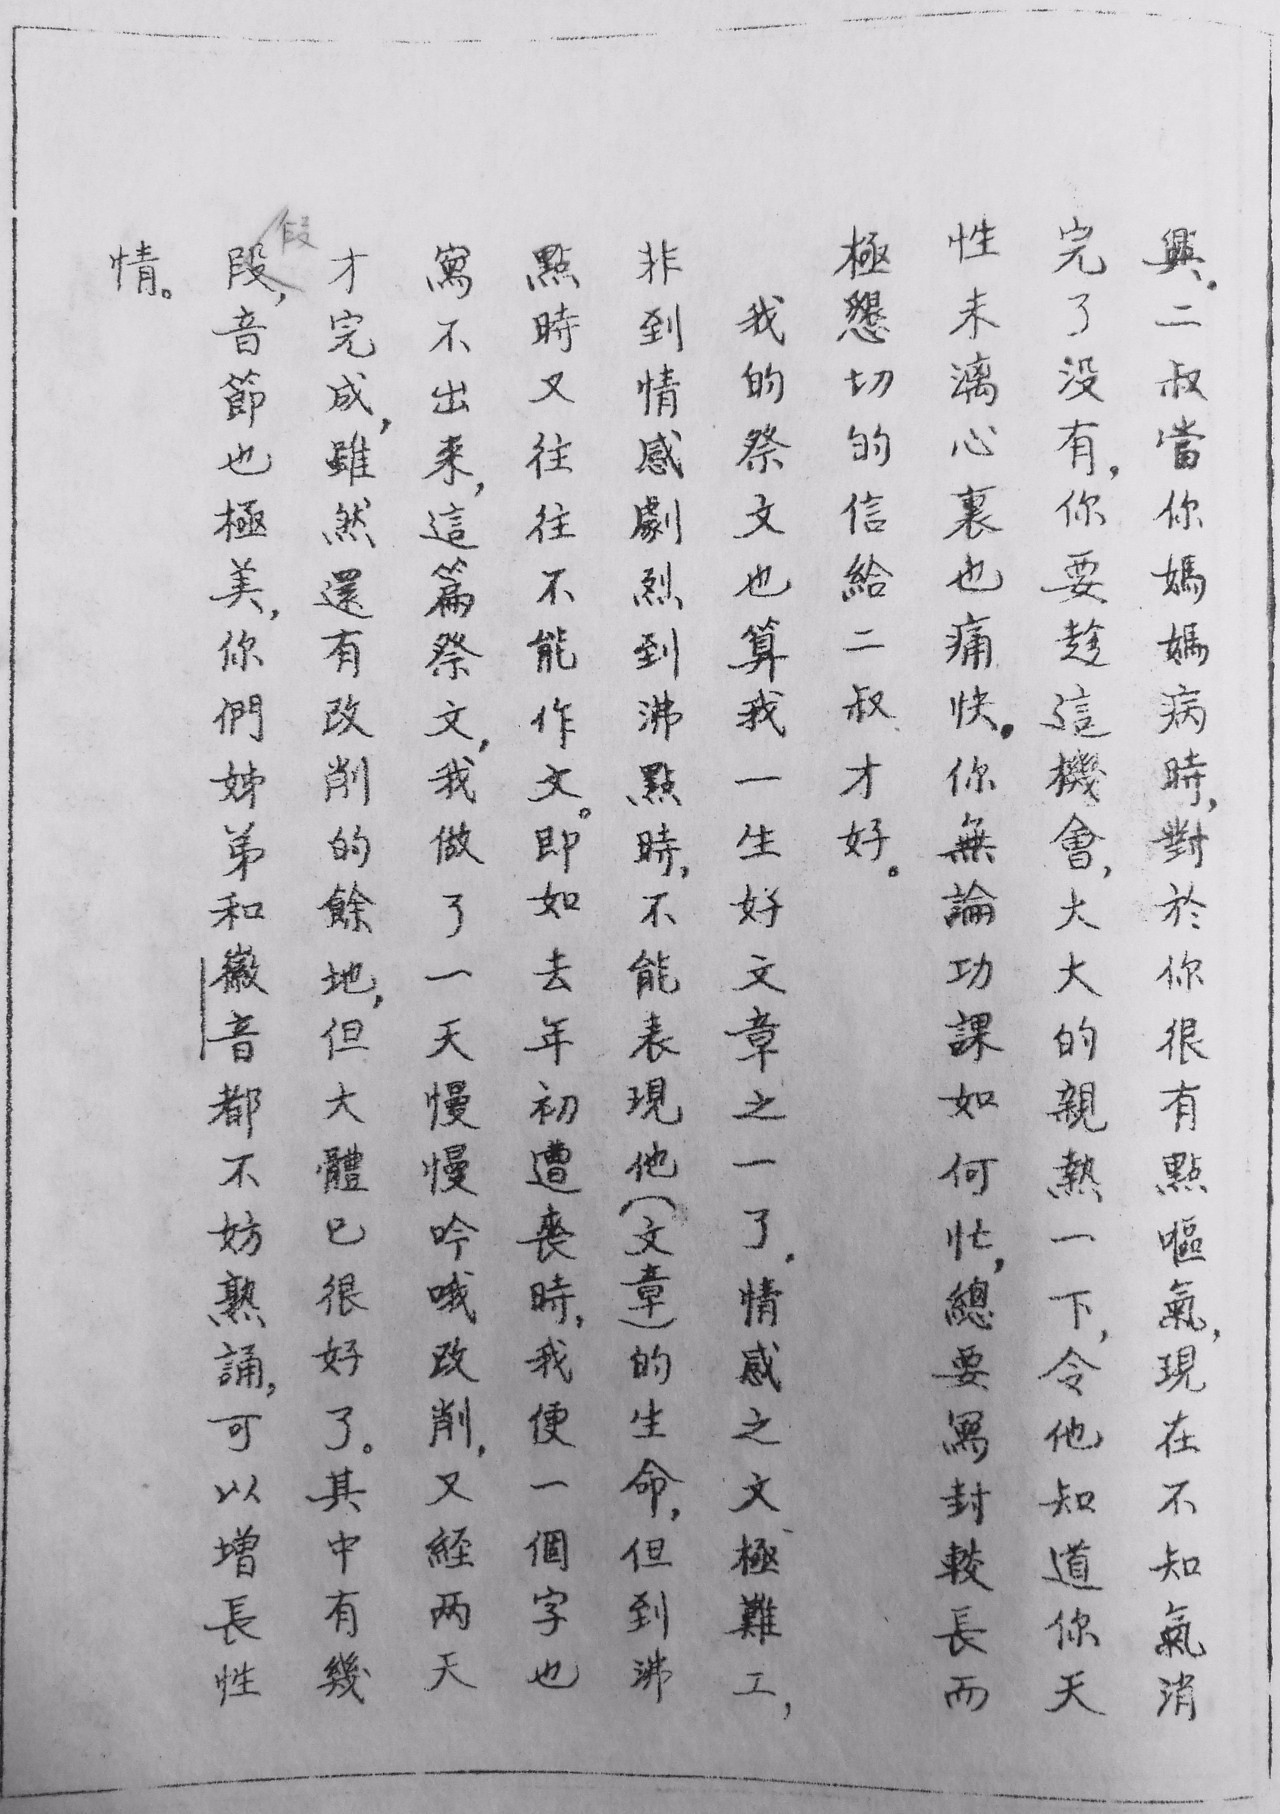 興。二叔當你媽媽病時，對於你很有點嘔氣，現在不知氣消
完了没有，你要趁這機會，大大的親熱一下，令他知道你天
性未漓心裏也痛快。你無論功課如何忙，總要寫封較長而
極懇切的信給二叔才好。
我的祭文也算我一生好文章之一了。情感之文極難工，
非到情感劇烈到沸點時，不能表現他（文章）的生命，但到沸
點時又往往不能作文。即如去年初遭喪時，我便一個字也
寫不出来，這篇祭文，我做了一天慢慢吟哦改削，又経两天
才完成，雖然還有改削的餘地，但大體已很好了。其中有幾
段，音節也極美，你們姊弟和徽音都不妨熟誦，可以增長性
情。
段